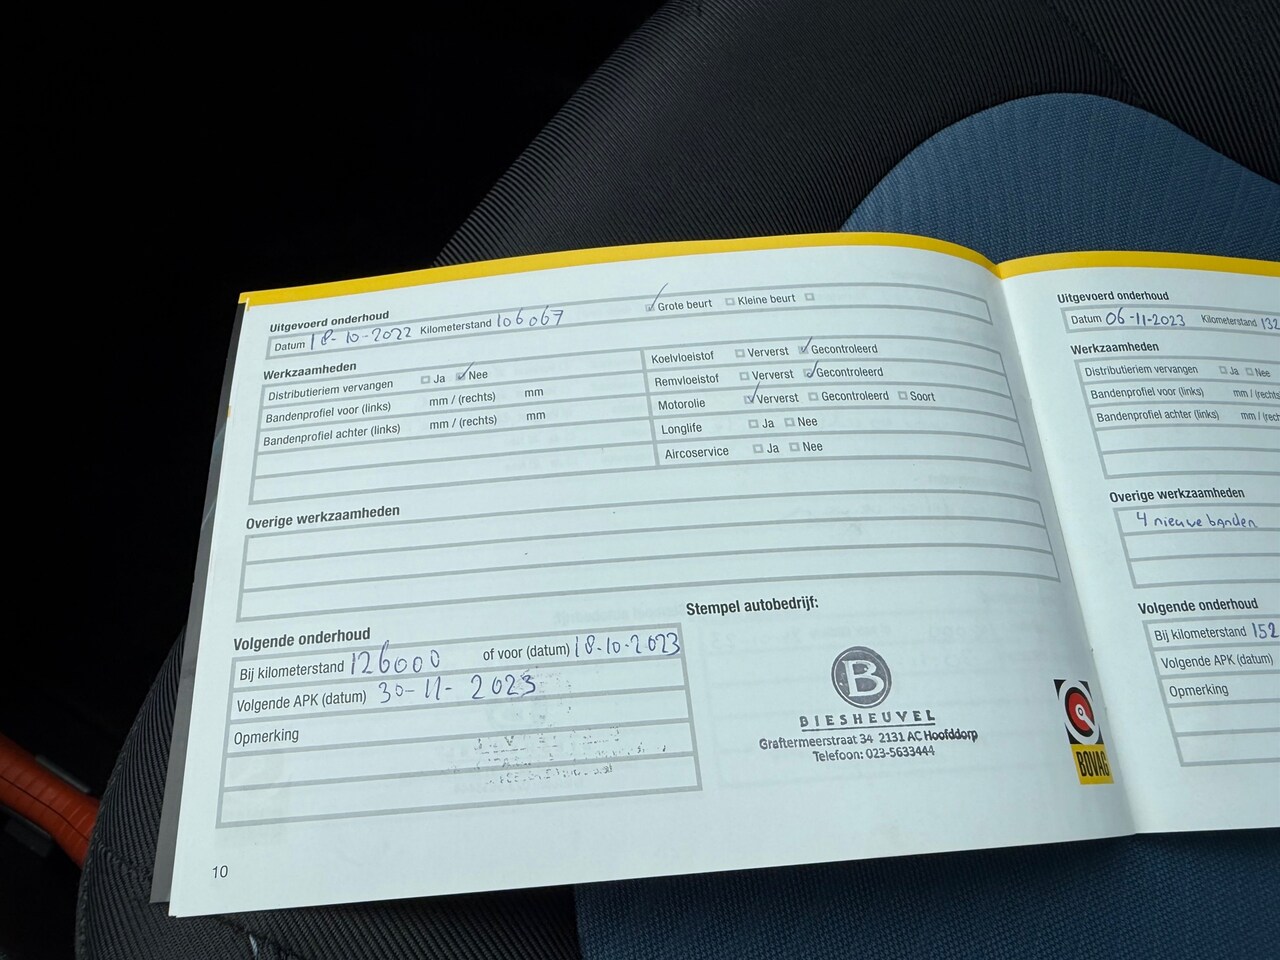 Uitgevoerd onderhoud
Datum 18-10-2022 Kilometerstand 106067 Grote beurt Kleine beurt
Werkzaamheden
Distributieriem vervangen Ja Nee
Bandenprofiel voor (links) mm / (rechts) mm
Bandenprofiel achter (links) mm / (rechts) mm
Koelvloeistof Ververst Gecontroleerd
Remvloeistof Ververst Gecontroleerd
Motorolie Ververst Gecontroleerd Soort
Longlife Ja Nee
Aircoservice Ja Nee
Overige werkzaamheden
Volgende onderhoud
Bij kilometerstand 126000 of voor (datum) 18-10-2023
Volgende APK (datum) 30-11-2023
Opmerking
Stempel autobedrijf:
B
BIESHEUVEL
Graftermeerstraat 34 2131 AC Hoofddorp
Telefoon: 023-5633444
BOVAG
10
Uitgevoerd onderhoud
Datum 06-11-2023 Kilometerstand 132
Werkzaamheden
Distributieriem vervangen Ja Nee
Bandenprofiel voor (links) mm / (rechts
Bandenprofiel achter (links) mm / (rech
Overige werkzaamheden
4 nieuwe banden
Volgende onderhoud
Bij kilometerstand 152
Volgende APK (datum)
Opmerking